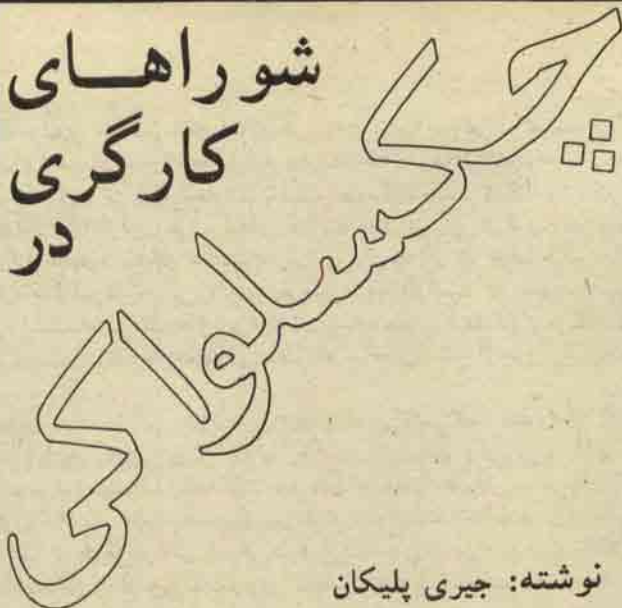 شوراهـای
کارگری
در
چکسلواکی
نوشته: جیری پلیکان